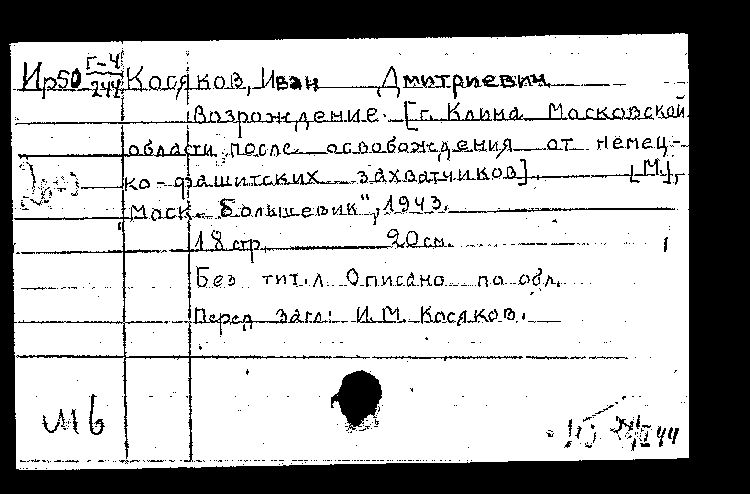 Ир50 Г-4/244 Косяков, Иван Дмитриевич
Возрождение. [г. Клина Московской
области после освобождения от немец-
ко-фашитских захватчиков]. [М.],
"Моск. большевик", 1943.
18 стр. 20 см.
Без тит. л. Описано по обл.
Перед загл: И. М. Косяков.
М6